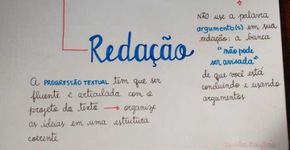 NÃO USE A PALAVRA
ARGUMENTO(S) EM SUA
REDAÇÃO; A BANCA
"NÃO PODE
SER AVISADA"
DE QUE VOCÊ ESTÁ
CONCLUINDO E USANDO
ARGUMENTOS
Redação
A PROGRESSÃO TEXTUAL TEM QUE SER
FLUENTE E ARTICULADA COM O
PROJETO DO TEXTO → ORGANIZE
AS IDEIAS EM UMA ESTRUTURA
COERENTE